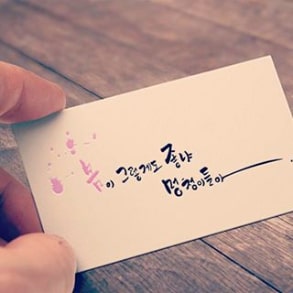 봄이 그렇게도 좋냐
멍청이들아